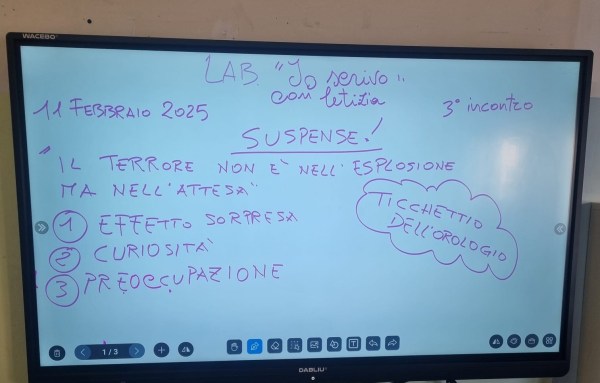 WACEBO
LAB "Io scrivo"
con letizia
11 FEBBRAIO 2025
3° incontro
SUSPENSE!
"IL TERRORE NON È NELL'ESPLOSIONE
MA NELL'ATTESA"
1 EFFETTO SORPRESA
2 CURIOSITÀ
3 PREOCCUPAZIONE
TICCHETTIO
DELL'OROLOGIO
1/3
DABLIU